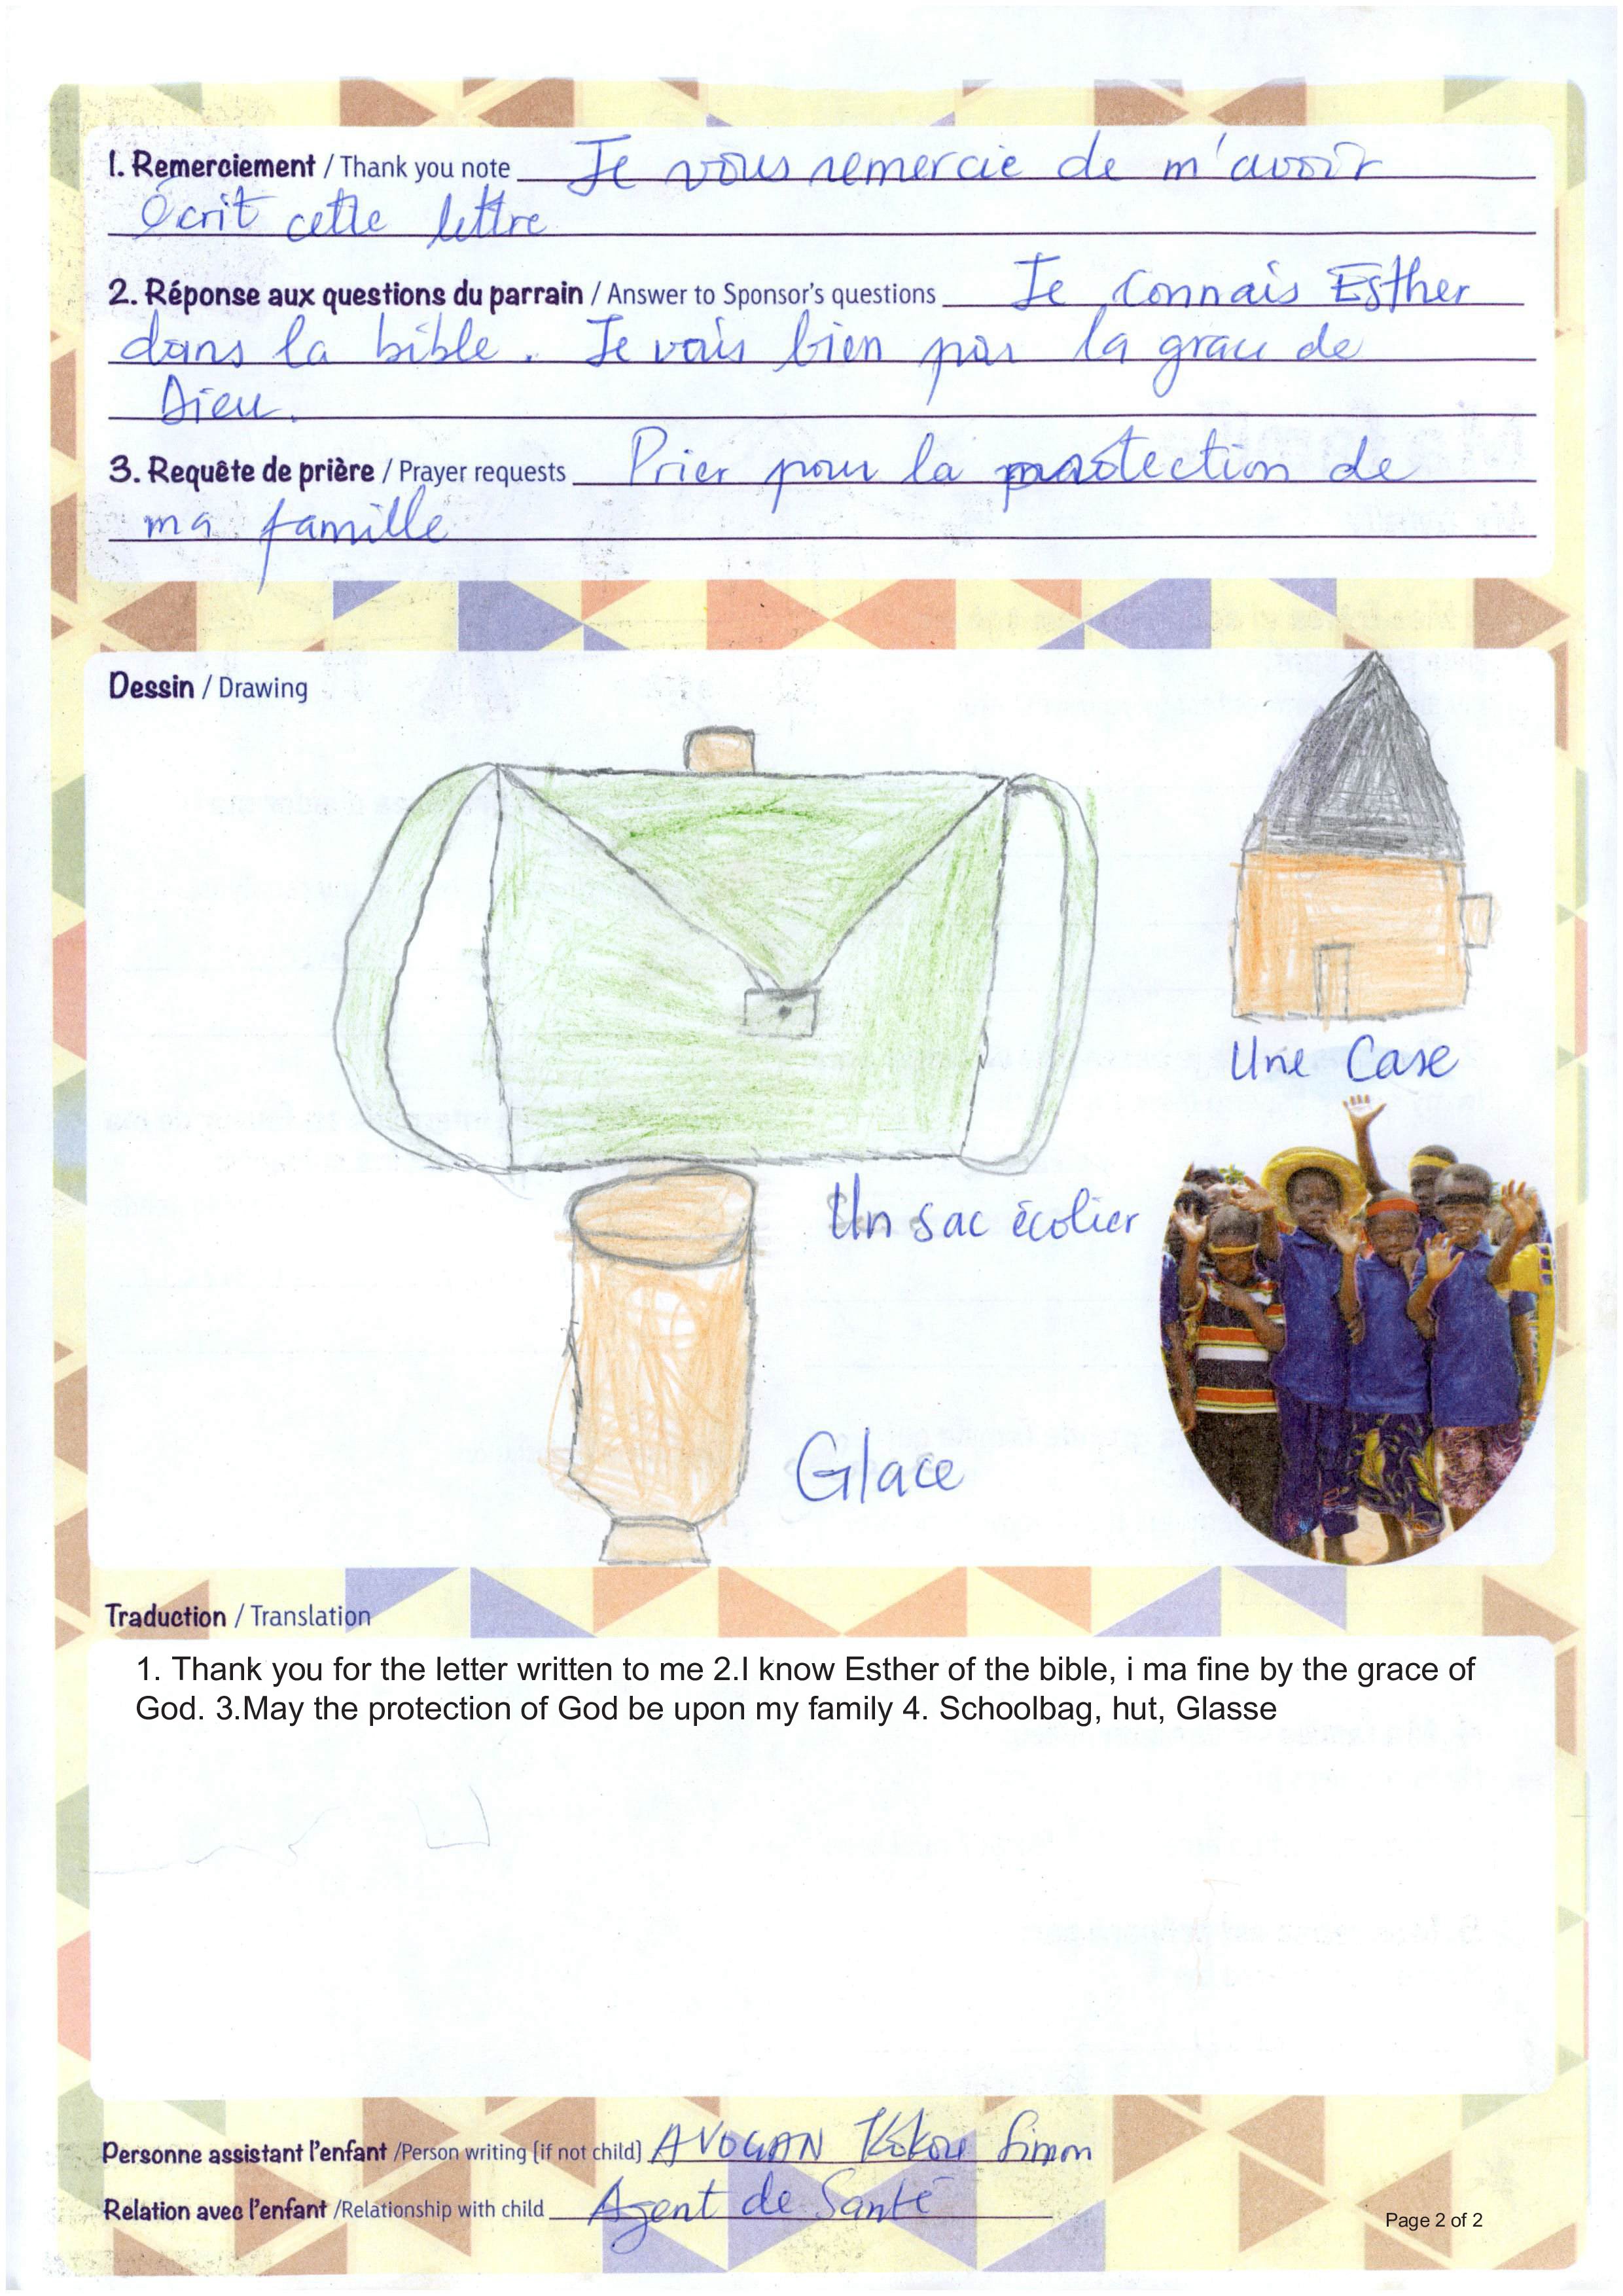 1. Remerciement / Thank you note Je vous remercie de m'avoir
écrit cette lettre
2. Réponse aux questions du parrain / Answer to Sponsor's questions Je connais Esther
dans la bible. Je vais bien par la grace de
Dieu.
3. Requête de prière / Prayer requests Prier pour la protection de
ma famille
Dessin / Drawing
Une Case
Un sac écolier
Glace
Traduction / Translation
1. Thank you for the letter written to me 2.I know Esther of the bible, i ma fine by the grace of
God. 3.May the protection of God be upon my family 4. Schoolbag, hut, Glasse
Personne assistant l'enfant /Person writing (if not child) AVOGAN Kokou Simon
Relation avec l'enfant /Relationship with child Agent de Santé
Page 2 of 2